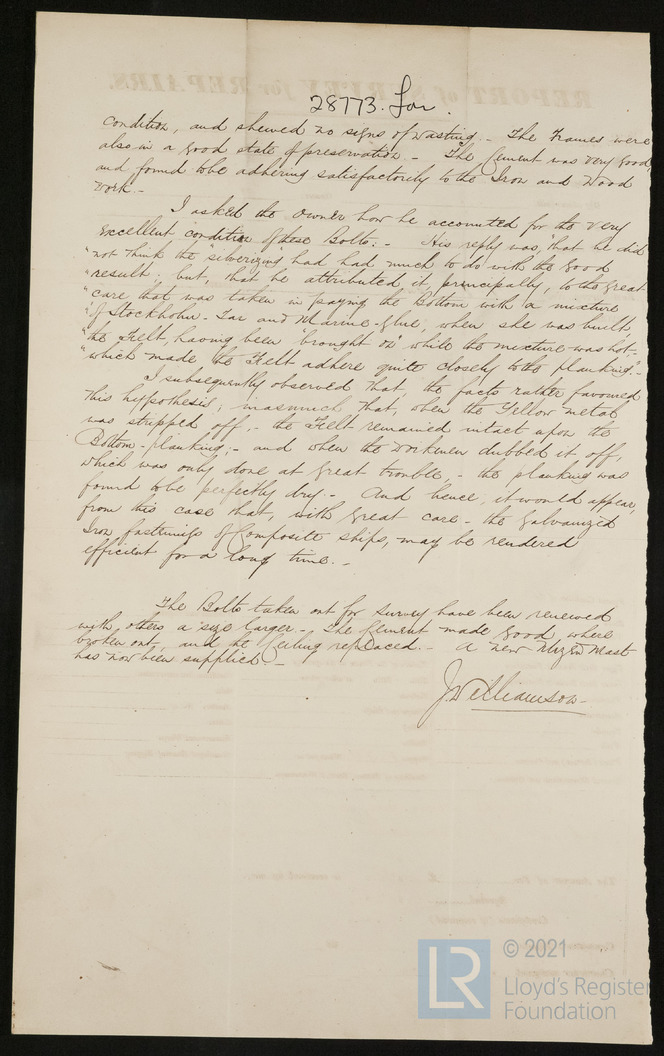 REPORT of SURVEY for REPAIRS.
28773. Lon.
condition, and shewed no signs of wasting. - The Frames were
also in a good state of preservation. - The Cement was very good,
and found to be adhering satisfactorily to the Iron and Wood
Work. -
I asked the owner how he accounted for the very
excellent condition of these Bolts: - His reply was, "that he did
"not think the "silverizing" had had much to do with the good
"result: but, that he attributed it, principally, to the great
"care that was taken in paying the Bottom with a mixture
"of Stockholm-Tar and Marine-Glue, when she was built,
"the Felt, having been "brought on" while the mixture was hot -
"which made the Felt adhere quite closely to the planking." -
I subsequently observed that, the facts rather favoured
this hypothesis; inasmuch that, when the Yellow metal
was stripped off, - the Felt remained intact upon the
Bottom-planking; - and when the workmen dubbed it off,
which was only done at great trouble, - the planking was
found to be perfectly dry. - And hence, it would appear,
from this case that, with great care - the Galvanized
Iron fastenings of Composite ships, may be rendered
efficient for a long time. -
The Bolts taken out for survey have been renewed
with others a size larger. - The Cement made good, where
broken out, and the Ceiling replaced. - A new Mizen Mast
has now been supplied. -
J Williamson
LR
© 2021
Lloyd's Register
Foundation